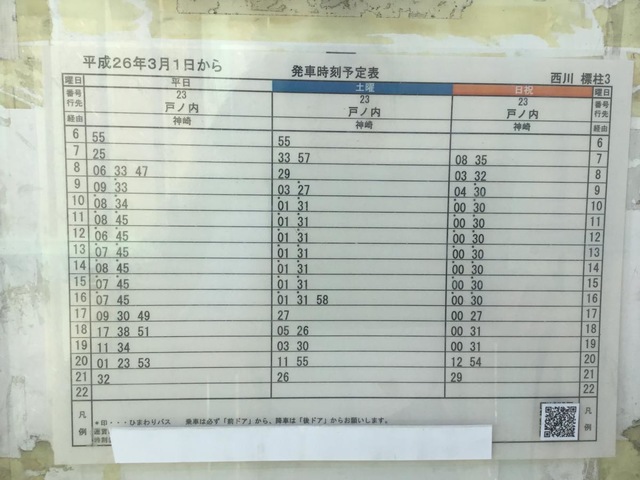 平成26年3月1日から 発車時刻予定表 西川 標柱3
曜日 平日 土曜 日祝 曜日
番号 23 23 23 番号
行先 戸ノ内 戸ノ内 戸ノ内 行先
経由 神崎 神崎 神崎 経由
6 55 55 6
7 25 33 57 08 35 7
8 06 33 47 29 03 32 8
9 09 33 03 27 04 30 9
10 08 34 01 31 00 30 10
11 08 45 01 31 00 30 11
12 06 45 01 31 00 30 12
13 07 45 01 31 00 30 13
14 08 45 01 31 00 30 14
15 07 45 01 31 00 30 15
16 07 45 01 31 58 00 30 16
17 09 30 49 27 00 27 17
18 17 38 51 05 26 00 31 18
19 11 34 03 30 00 31 19
20 01 23 53 11 55 12 54 20
21 32 26 29 21
22 22
凡例 *印・・・ひまわりバス 乗車は必ず「前ドア」から、降車は「後ドア」からお願いします。 凡例